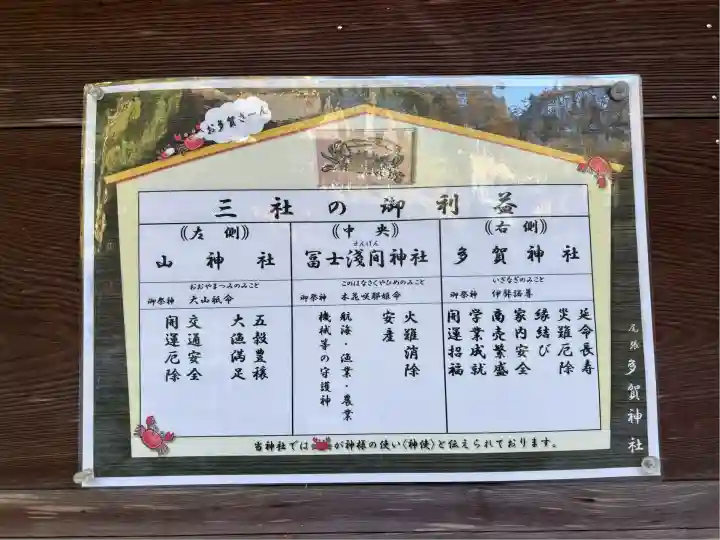 お多賀さーん
三社の御利益
《左側》
山神社
おおやまつみのみこと
御祭神 大山祇命
五穀豊穣
大漁満足
交通安全
開運厄除
《中央》
せんげん
冨士浅間神社
このはなさくやひめのみこと
御祭神 木花咲耶姫命
火難消除
安産
航海・漁業・農業
機械等の守護神
《右側》
多賀神社
いざなぎのみこと
御祭神 伊弉諾尊
延命長寿
災難厄除
縁結び
家内安全
商売繁盛
学業成就
開運招福
尾張 多賀神社
当神社ではが神様の使い〈神使〉と伝えられております。